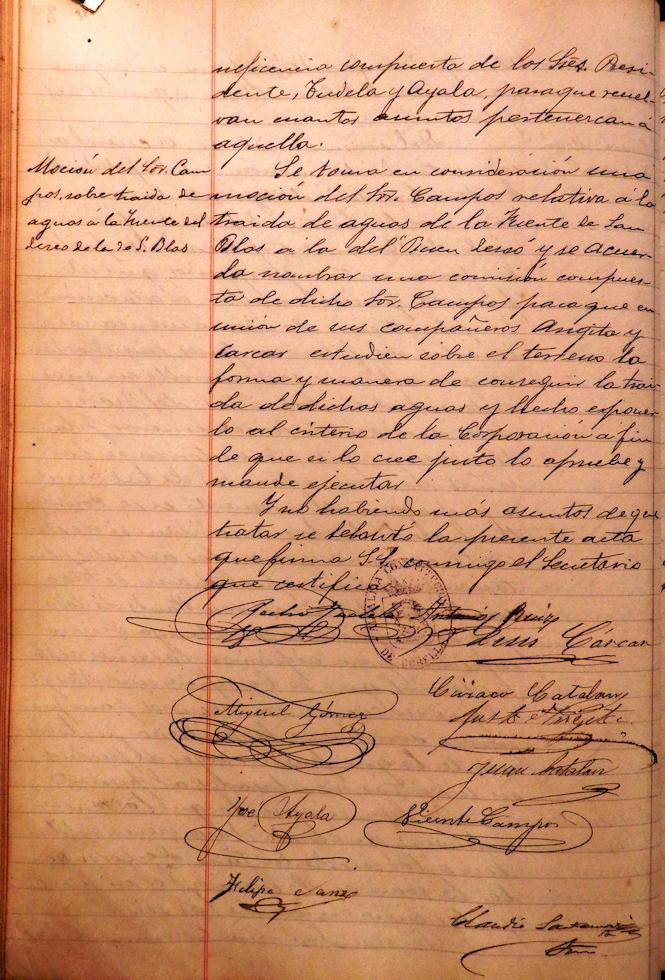 neficencia compuesta de los Sres. Presi-
dente, Tudela y Ayala, para que resuel-
van cuantos asuntos pertenezcan á
aquella.
Moción del Sor. Cam-
pos, sobre traida de
aguas á la Fuente del
deseo de la de S. Blas
Se toma en consideración una
moción del Sor. Campos relativa á la
traida de aguas de la Fuente de San
Blas á la del "Buen deseo" y se acuer-
da nombrar una comisión compues-
ta de dicho Sor. Campos para que en
unión de sus compañeros Angita y
Carcar estudien sobre el terreno la
forma y manera de conseguir la trai-
da de dichas aguas y hecho esponer-
lo al criterio de la Corporación a fin
de que si lo cree justo lo apruebe y
mande ejecutar
Y no habiendo más asuntos de que
tratar se lebantó la presente acta
que firma S.S. conmigo el Secretario
que certifico.
Pedro Tudela Antonio Ruiz
Luis Cárcar
Ciriaco Catalan
Miguel Gómez
Justo
Juan Catalan
José Ayala
Vicente Campos
Felipe Sanz
Claudio